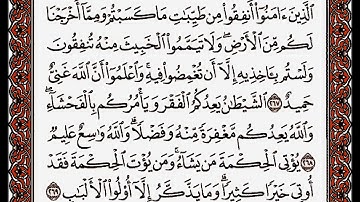 ٱلَّذِينَ ءَامَنُوٓا۟ أَنفِقُوا۟ مِن طَيِّبَـٰتِ مَا كَسَبْتُمْ وَمِمَّآ أَخْرَجْنَا
لَكُم مِّنَ ٱلْأَرْضِ ۖ وَلَا تَيَمَّمُوا۟ ٱلْخَبِيثَ مِنْهُ تُنفِقُونَ
وَلَسْتُم بِـَٔاخِذِيهِ إِلَّآ أَن تُغْمِضُوا۟ فِيهِ ۚ وَٱعْلَمُوٓا۟ أَنَّ ٱللَّهَ غَنِىٌّ
حَمِيدٌ ٢٦٧ ٱلشَّيْطَـٰنُ يَعِدُكُمُ ٱلْفَقْرَ وَيَأْمُرُكُم بِٱلْفَحْشَآءِ ۖ
وَٱللَّهُ يَعِدُكُم مَّغْفِرَةً مِّنْهُ وَفَضْلًا ۗ وَٱللَّهُ وَٰسِعٌ عَلِيمٌ ٢٦٨
يُؤْتِى ٱلْحِكْمَةَ مَن يَشَآءُ ۚ وَمَن يُؤْتَ ٱلْحِكْمَةَ فَقَدْ
أُوتِىَ خَيْرًا كَثِيرًا ۗ وَمَا يَذَّكَّرُ إِلَّآ أُو۟لُوا۟ ٱلْأَلْبَـٰبِ ٢٦٩